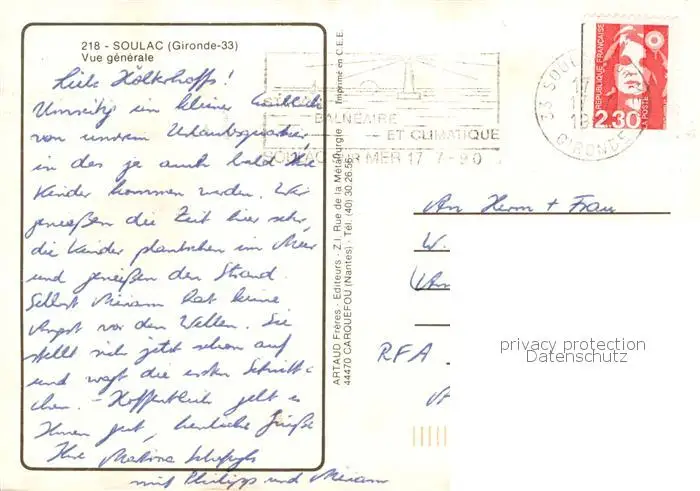 218 - SOULAC (Gironde-33)
Vue générale
Liebe Hölkerhoffs!
ein kleiner
von unserem Urlaubsquartier
in das ja auch bald Ihre
Kinder kommen werden. Wir
genießen die Zeit hier sehr,
die Kinder plantschen im Meer
und genießen den Strand.
Selbst Miriam hat keine
Angst vor den Wellen. Sie
stellt sich jetzt schon auf
und wagt die ersten Schritt-
chen. - Hoffentlich geht es
Ihnen gut, herzliche Grüße
Ihre
mit Philipp und Miriam
Imprimé en C.E.E.
ARTAUD Frères - Editeurs - Z.I. Rue de la Métallurgie
44470 CARQUEFOU (Nantes) - Tél. (40) 30.26.56
BALNEAIRE
ET CLIMATIQUE
SOULAC SUR MER 17 7-90
33 SOUL
17
GIRONDE
REPUBLIQUE FRANÇAISE
2,30
LA POSTE
An Herrn + Frau
W.
RFA
privacy protection
Datenschutz